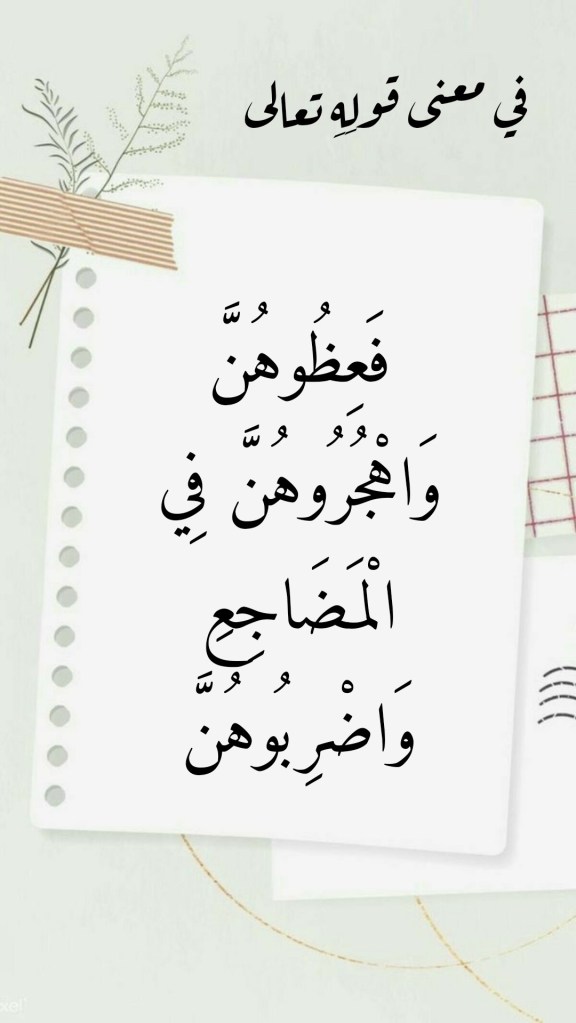 في معنى قولهِ تعالى
فَعِظُوهُنَّ
وَاهْجُرُوهُنَّ فِي
الْمَضَاجِعِ
وَاضْرِبُوهُنَّ